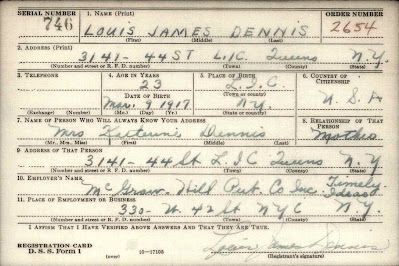 SERIAL NUMBER 1. NAME (Print) ORDER NUMBER
746 LOUIS JAMES DENNIS 2654
(First) (Middle) (Last)
2. ADDRESS (Print)
3141- 44 ST L.I.C. Queens N.Y.
(Number and street or R. F. D. number) (Town) (County) (State)
3. TELEPHONE 4. AGE IN YEARS 5. PLACE OF BIRTH 6. COUNTRY OF CITIZENSHIP
23 L.I.C.
DATE OF BIRTH (Town or county)
Mar. 9 1917 N.Y. U.S.A
(Exchange) (Number) (Mo.) (Day) (Yr.) (State or country)
7. NAME OF PERSON WHO WILL ALWAYS KNOW YOUR ADDRESS 8. RELATIONSHIP OF THAT PERSON
Mrs Dennis Mother
(Mr., Mrs., Miss) (First) (Middle) (Last)
9. ADDRESS OF THAT PERSON
3141- 44 St L.I.C Queens N.Y
(Number and street or R. F. D. number) (Town) (County) (State)
10. EMPLOYER'S NAME
McGraw-Hill Pub. Co Inc. Timely Ideas
11. PLACE OF EMPLOYMENT OR BUSINESS
330- W. 42 St NYC N.Y.
(Number and street or R. F. D. number) (Town) (County) (State)
I AFFIRM THAT I HAVE VERIFIED ABOVE ANSWERS AND THAT THEY ARE TRUE.
REGISTRATION CARD
D. S. S. Form 1 16-17105 Louis James Dennis
(Registrant's signature)